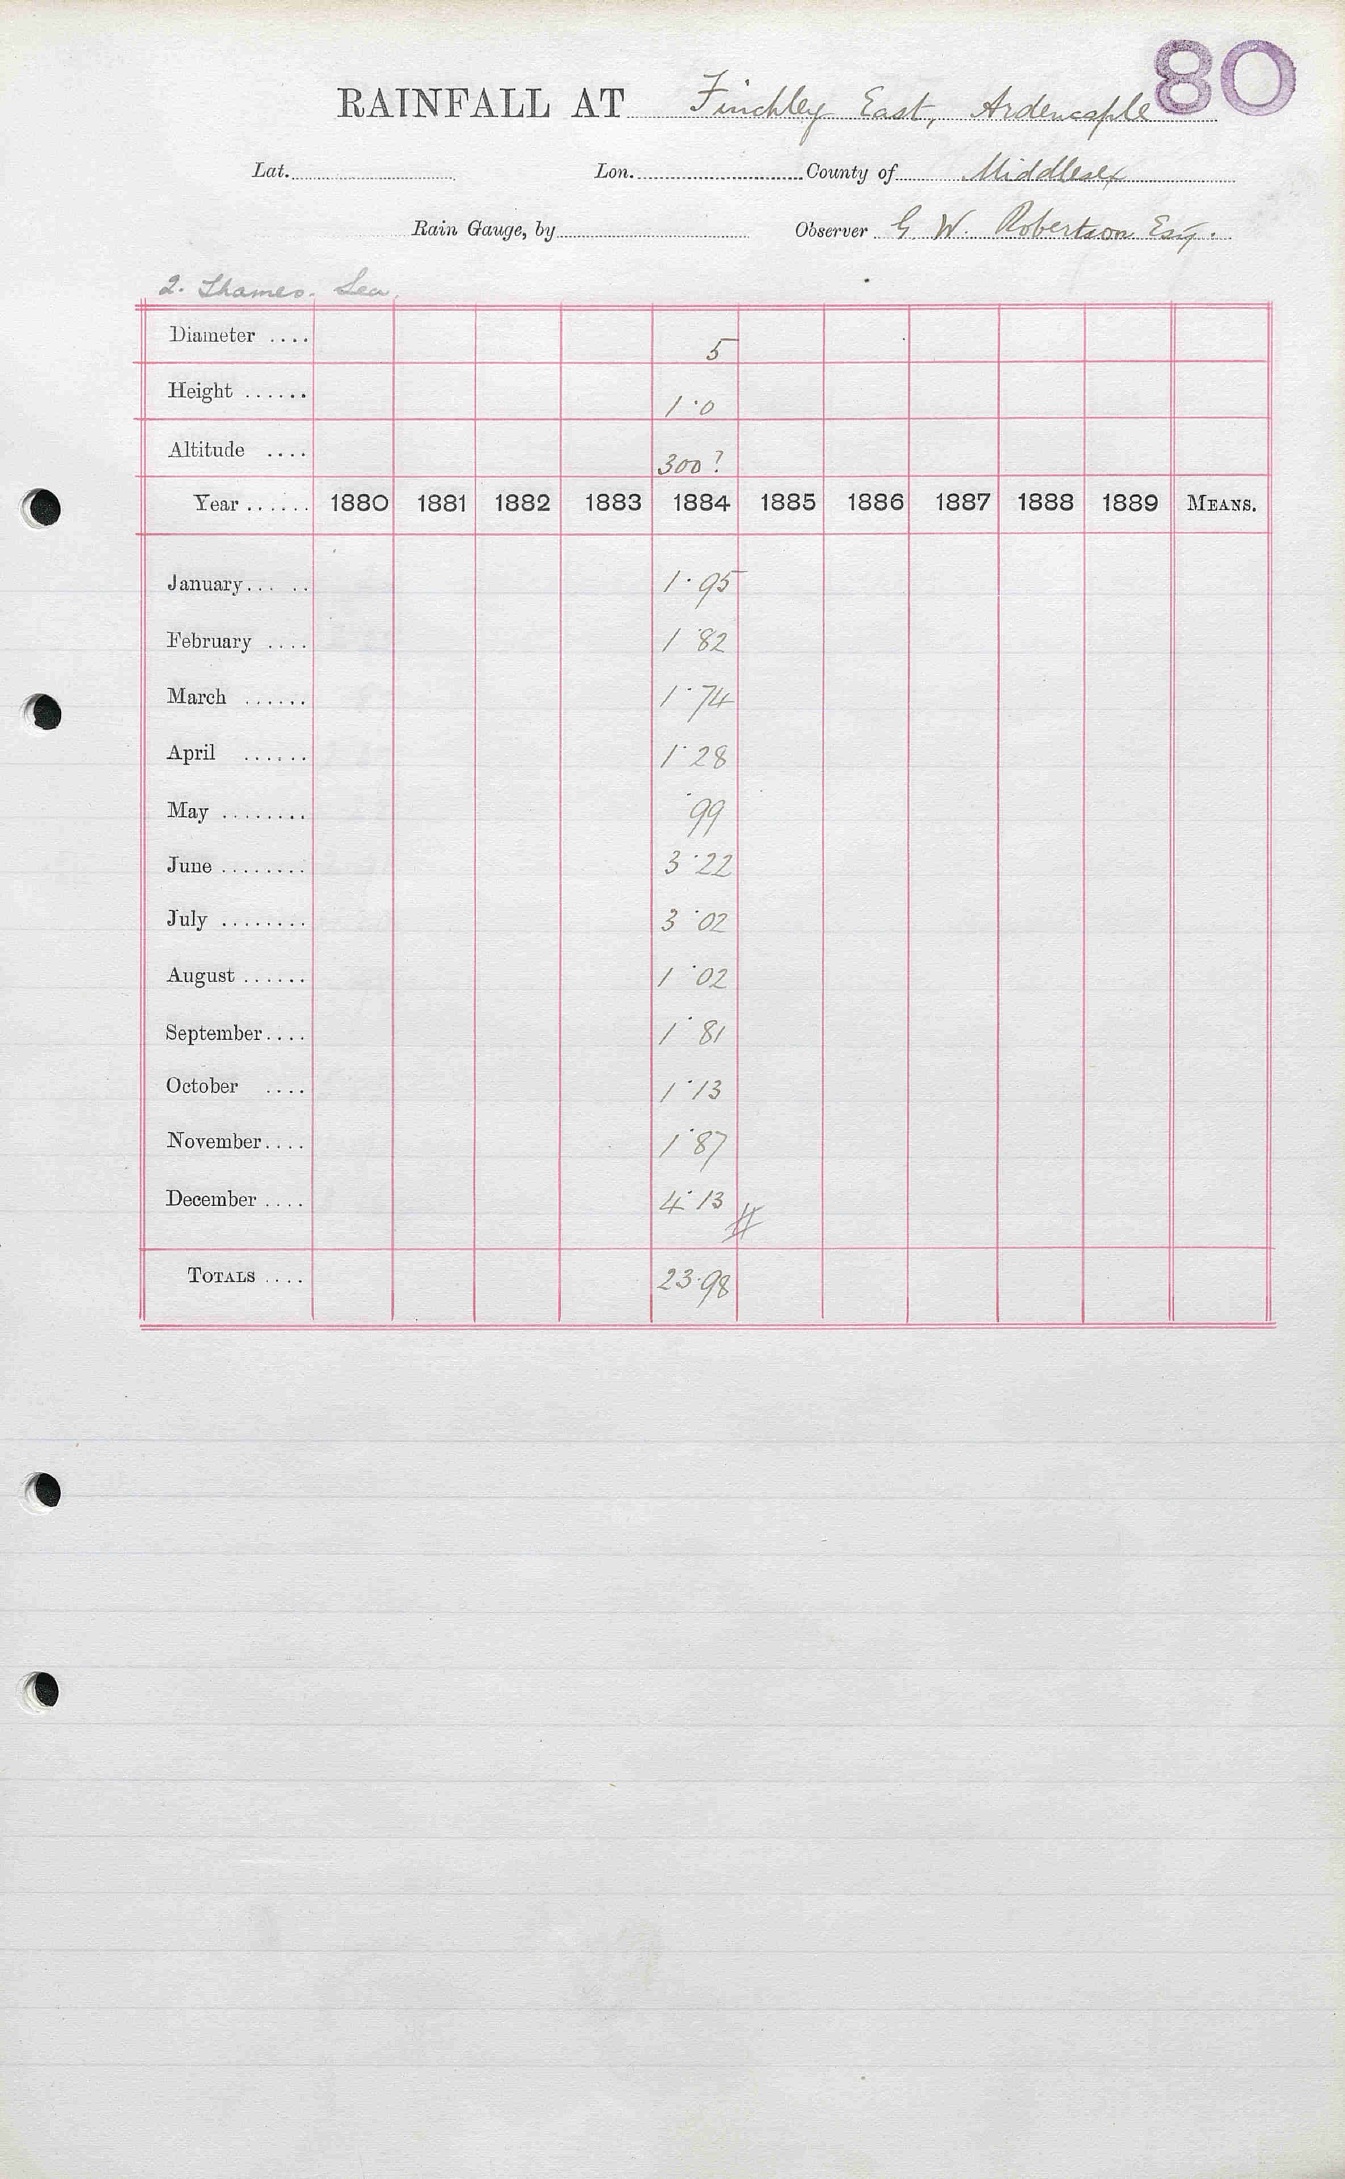 80
RAINFALL AT Finchley East, Ardencaple
Lat. Lon. County of Middlesex
Rain Gauge, by Observer G. W. Robertson Esq.
2. Thames. Lea.
Diameter .... 5
Height ...... 1·0
Altitude .... 300?
Year ...... 1880 1881 1882 1883 1884 1885 1886 1887 1888 1889 MEANS.
January... .. 1·95
February .... 1·82
March ...... 1·74
April ...... 1·28
May ........ ·99
June ........ 3·22
July ........ 3·02
August ...... 1·02
September.... 1·81
October .... 1·13
November.... 1·87
December .... 4·13
TOTALS .... 23·98